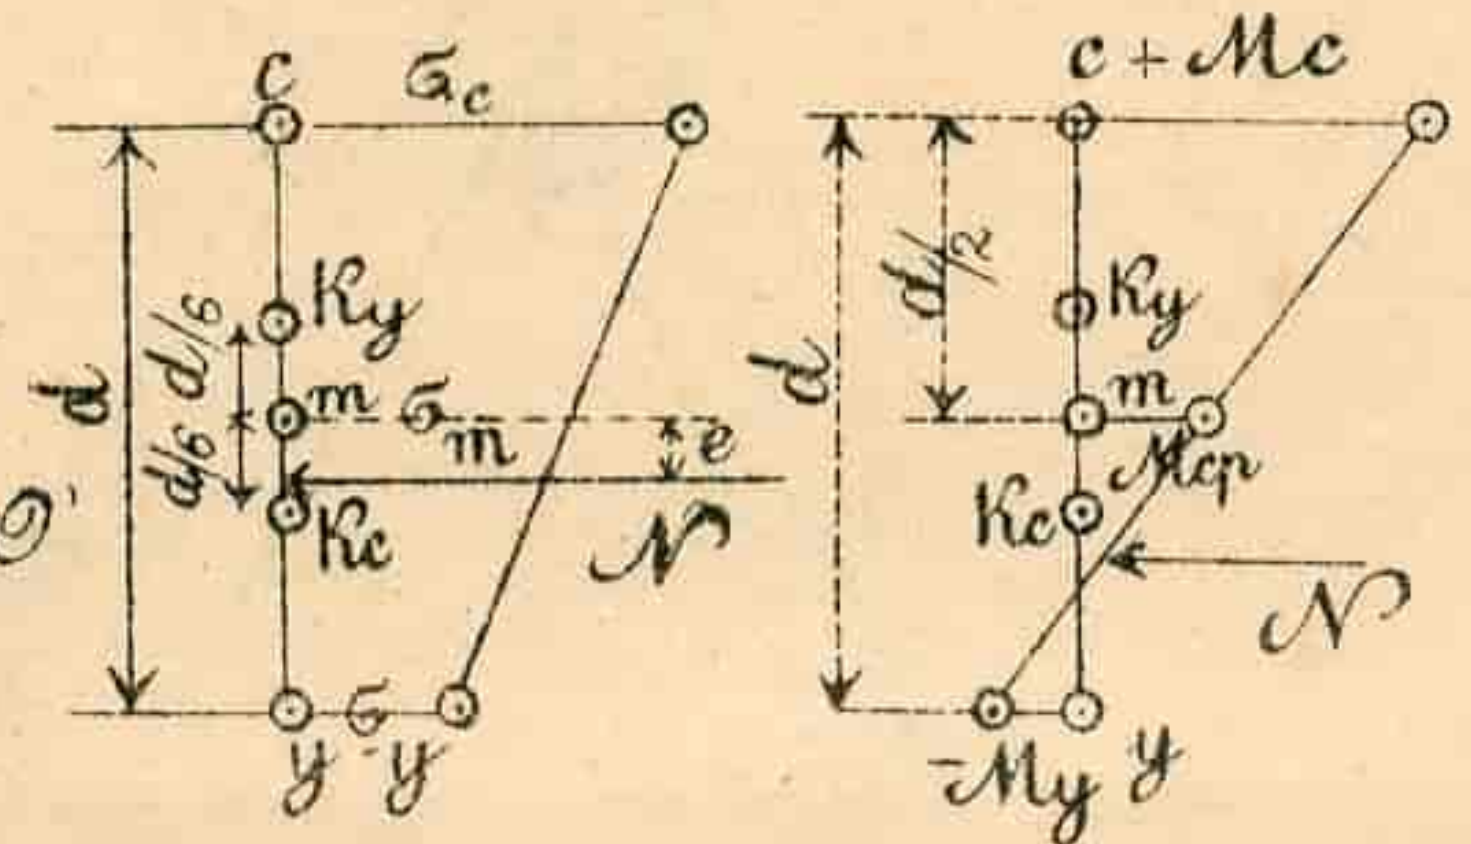 c σc
d
Ky
d/6
m σm
d/6
e
Kc
N
y σy
c + Mc
d/2
d
Ky
m
Mcp
Kc
N
-My y